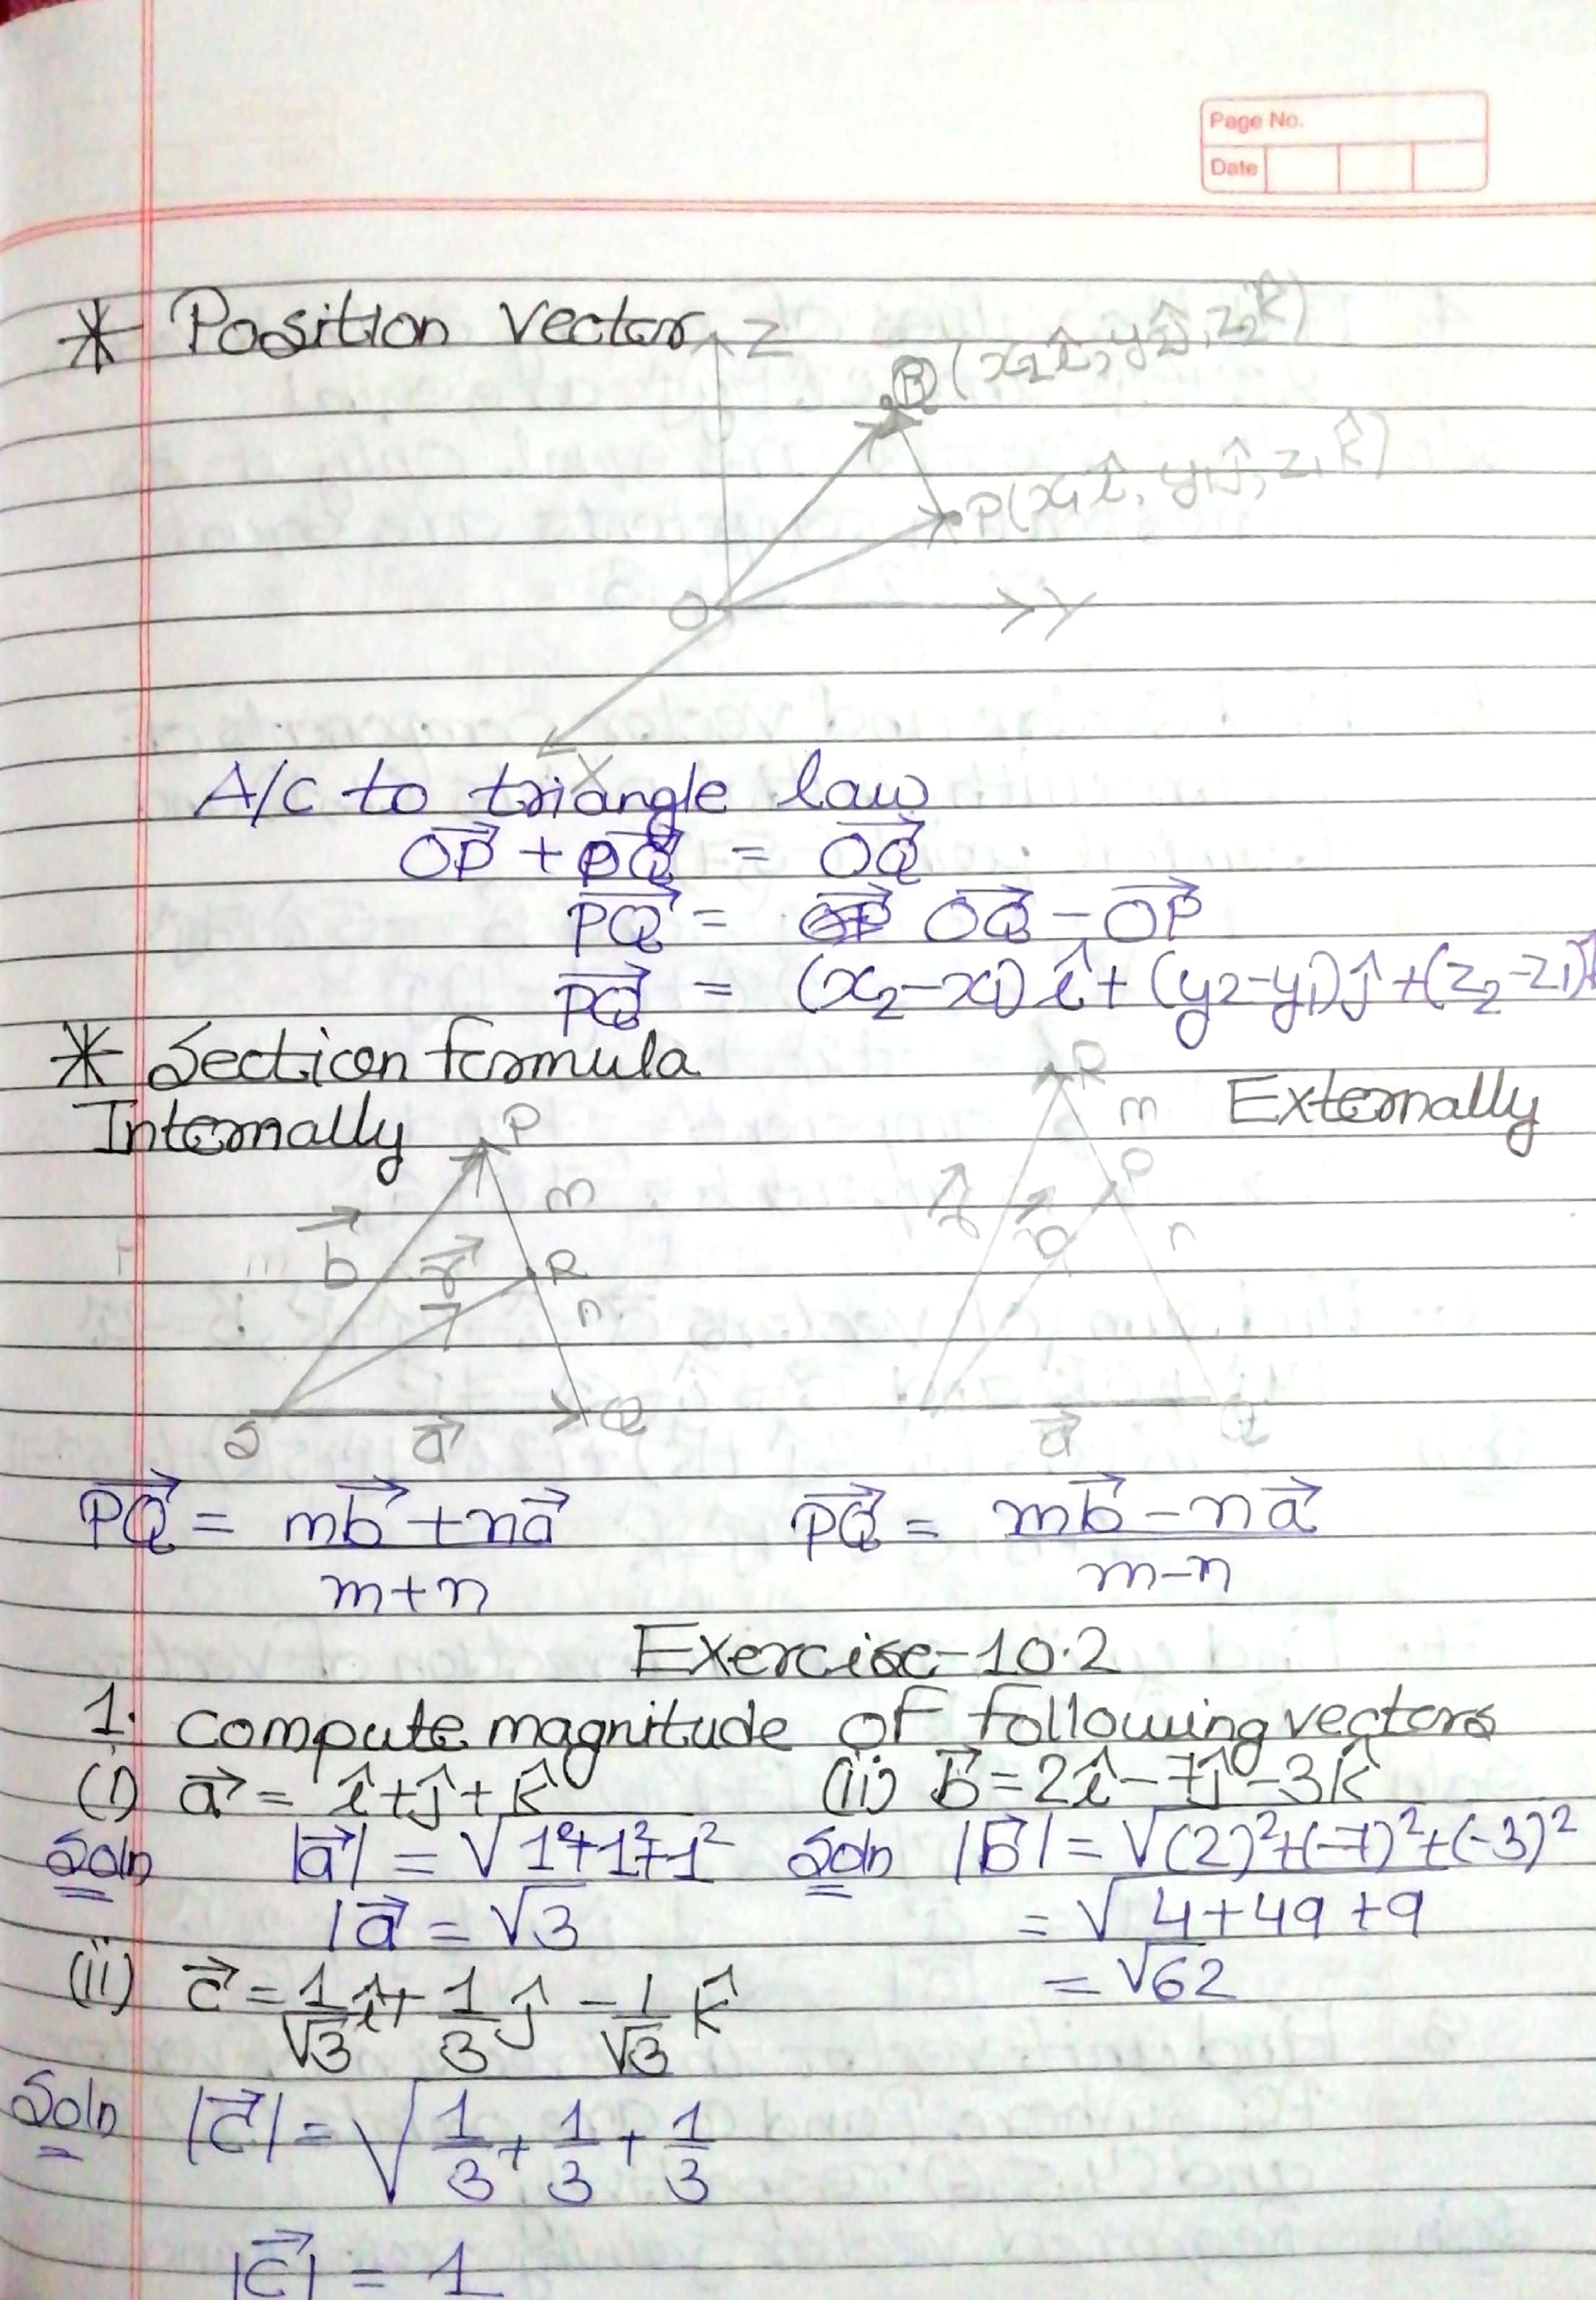 Page No.
Date
* Position vector
Z
Q(x₂î, y₂ĵ, z₂k̂)
P(x₁î, y₁ĵ, z₁k̂)
O
Y
X
A/c to triangle law
OP⃗ + PQ⃗ = OQ⃗
PQ⃗ = OQ⃗ - OP⃗
PQ⃗ = (x₂-x₁)î + (y₂-y₁)ĵ + (z₂-z₁)
* Section formula
Internally
P
m
b⃗
r⃗
R
n
a⃗
Q
Externally
R
m
P
n
a⃗
Q
PQ⃗ = (mb⃗ + na⃗)/(m+n)
PQ⃗ = (mb⃗ - na⃗)/(m-n)
Exercise-10.2
1. compute magnitude of following vectors
(i) a⃗ = î+ĵ+k̂ (ii) b⃗ = 2î-7ĵ-3k̂
Soln |a⃗| = √(1²+1²+1²) Soln |b⃗| = √((2)²+(-7)²+(-3)²)
|a⃗ = √3 = √(4+49+9)
= √62
(ii) c⃗ = 1/√3 î + 1/3 ĵ - 1/√3 k̂
Soln |c⃗| = √(1/3 + 1/3 + 1/3)
|c⃗| = 1